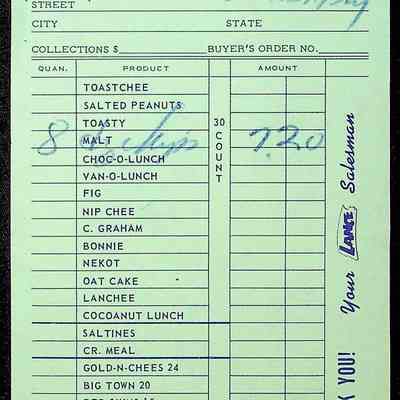 STREET
CITY STATE
COLLECTIONS $ BUYER'S ORDER NO.
QUAN. PRODUCT AMOUNT
TOASTCHEE
SALTED PEANUTS
TOASTY
MALT
8 chips 7.20
CHOC-O-LUNCH
VAN-O-LUNCH
FIG
NIP CHEE
C. GRAHAM
BONNIE
NEKOT
OAT CAKE
LANCHEE
COCOANUT LUNCH
SALTINES
CR. MEAL
GOLD-N-CHEES 24
BIG TOWN 20
30 COUNT
YOU!
Your LANCE Salesman